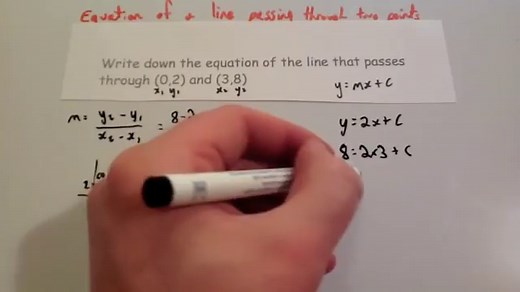 Equation of a line passing through two points
Write down the equation of the line that passes
through (0,2) and (3,8)
x₁ y₁ x₂ y₂
y=mx+c
m= y₂-y₁ / x₂-x₁ = 8-2
y=2x+c
8=2x3+c